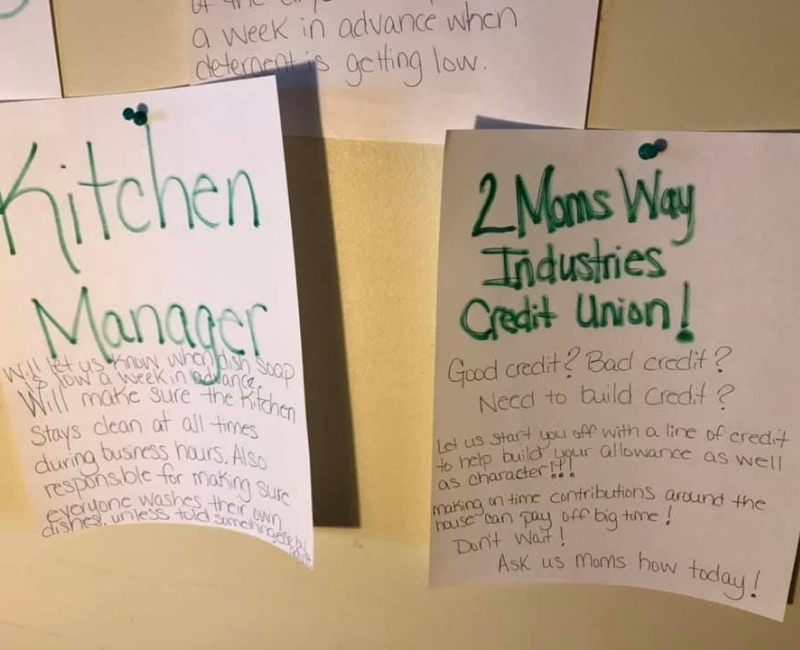 of the
a week in advance when
detergent is getting low.
Kitchen
Manager
Will let us know when dish soap
is low a week in advance.
Will make sure the kitchen
stays clean at all times
during business hours. Also
responsible for making sure
everyone washes their own
dishes, unless told something else by
2 Moms Way
Industries
Credit Union!
Good credit? Bad credit?
Need to build credit?
Let us start you off with a line of credit
to help build your allowance as well
as character!!!
making on time contributions around the
house can pay off big time!
Don't Wait!
Ask us moms how today!